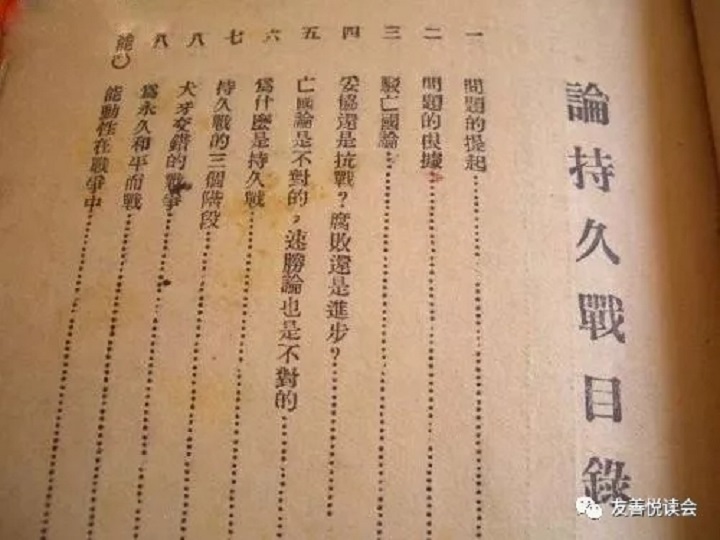 論持久戰目錄
一 問題的提起
二 問題的根據
三 駁亡國論
四 妥協還是抗戰?腐敗還是進步?
五 亡國論是不對的,速勝論也是不對的
六 爲什麼是持久戰
七 持久戰的三個階段
八 犬牙交錯的戰爭
八 爲永久和平而戰
能動性在戰爭中
友善悦读会